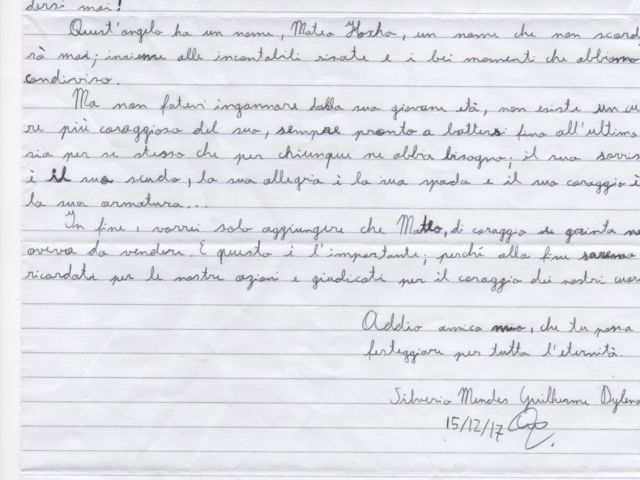 dersi mai!
Quest'angelo ha un nome, Matea Hoxha, un nome che non scord
rò mai; insieme alle incontabili risate e i bei momenti che abbiamo
condiviso.
Ma non fatevi ingannare dalla sua giovane età, non esiste un cu
re più coraggioso del suo, sempre pronto a battersi fino all'ultimo
sia per se stesso che per chiunque ne abbia bisogno; il suo sorris
è il suo scudo, la sua allegria è la sua spada e il suo coraggio è
la sua armatura...
In fine, vorrei solo aggiungere che Matteo, di coraggio e grinta ne
aveva da vendere. E questo è l'importante; perché alla fine saremo
ricordati per le nostre azioni e giudicati per il coraggio dei nostri cuori
Addio amico mio, che tu possa
festeggiare per tutta l'eternità.
Silverio Mendes Guilherme Dylene
15/12/17